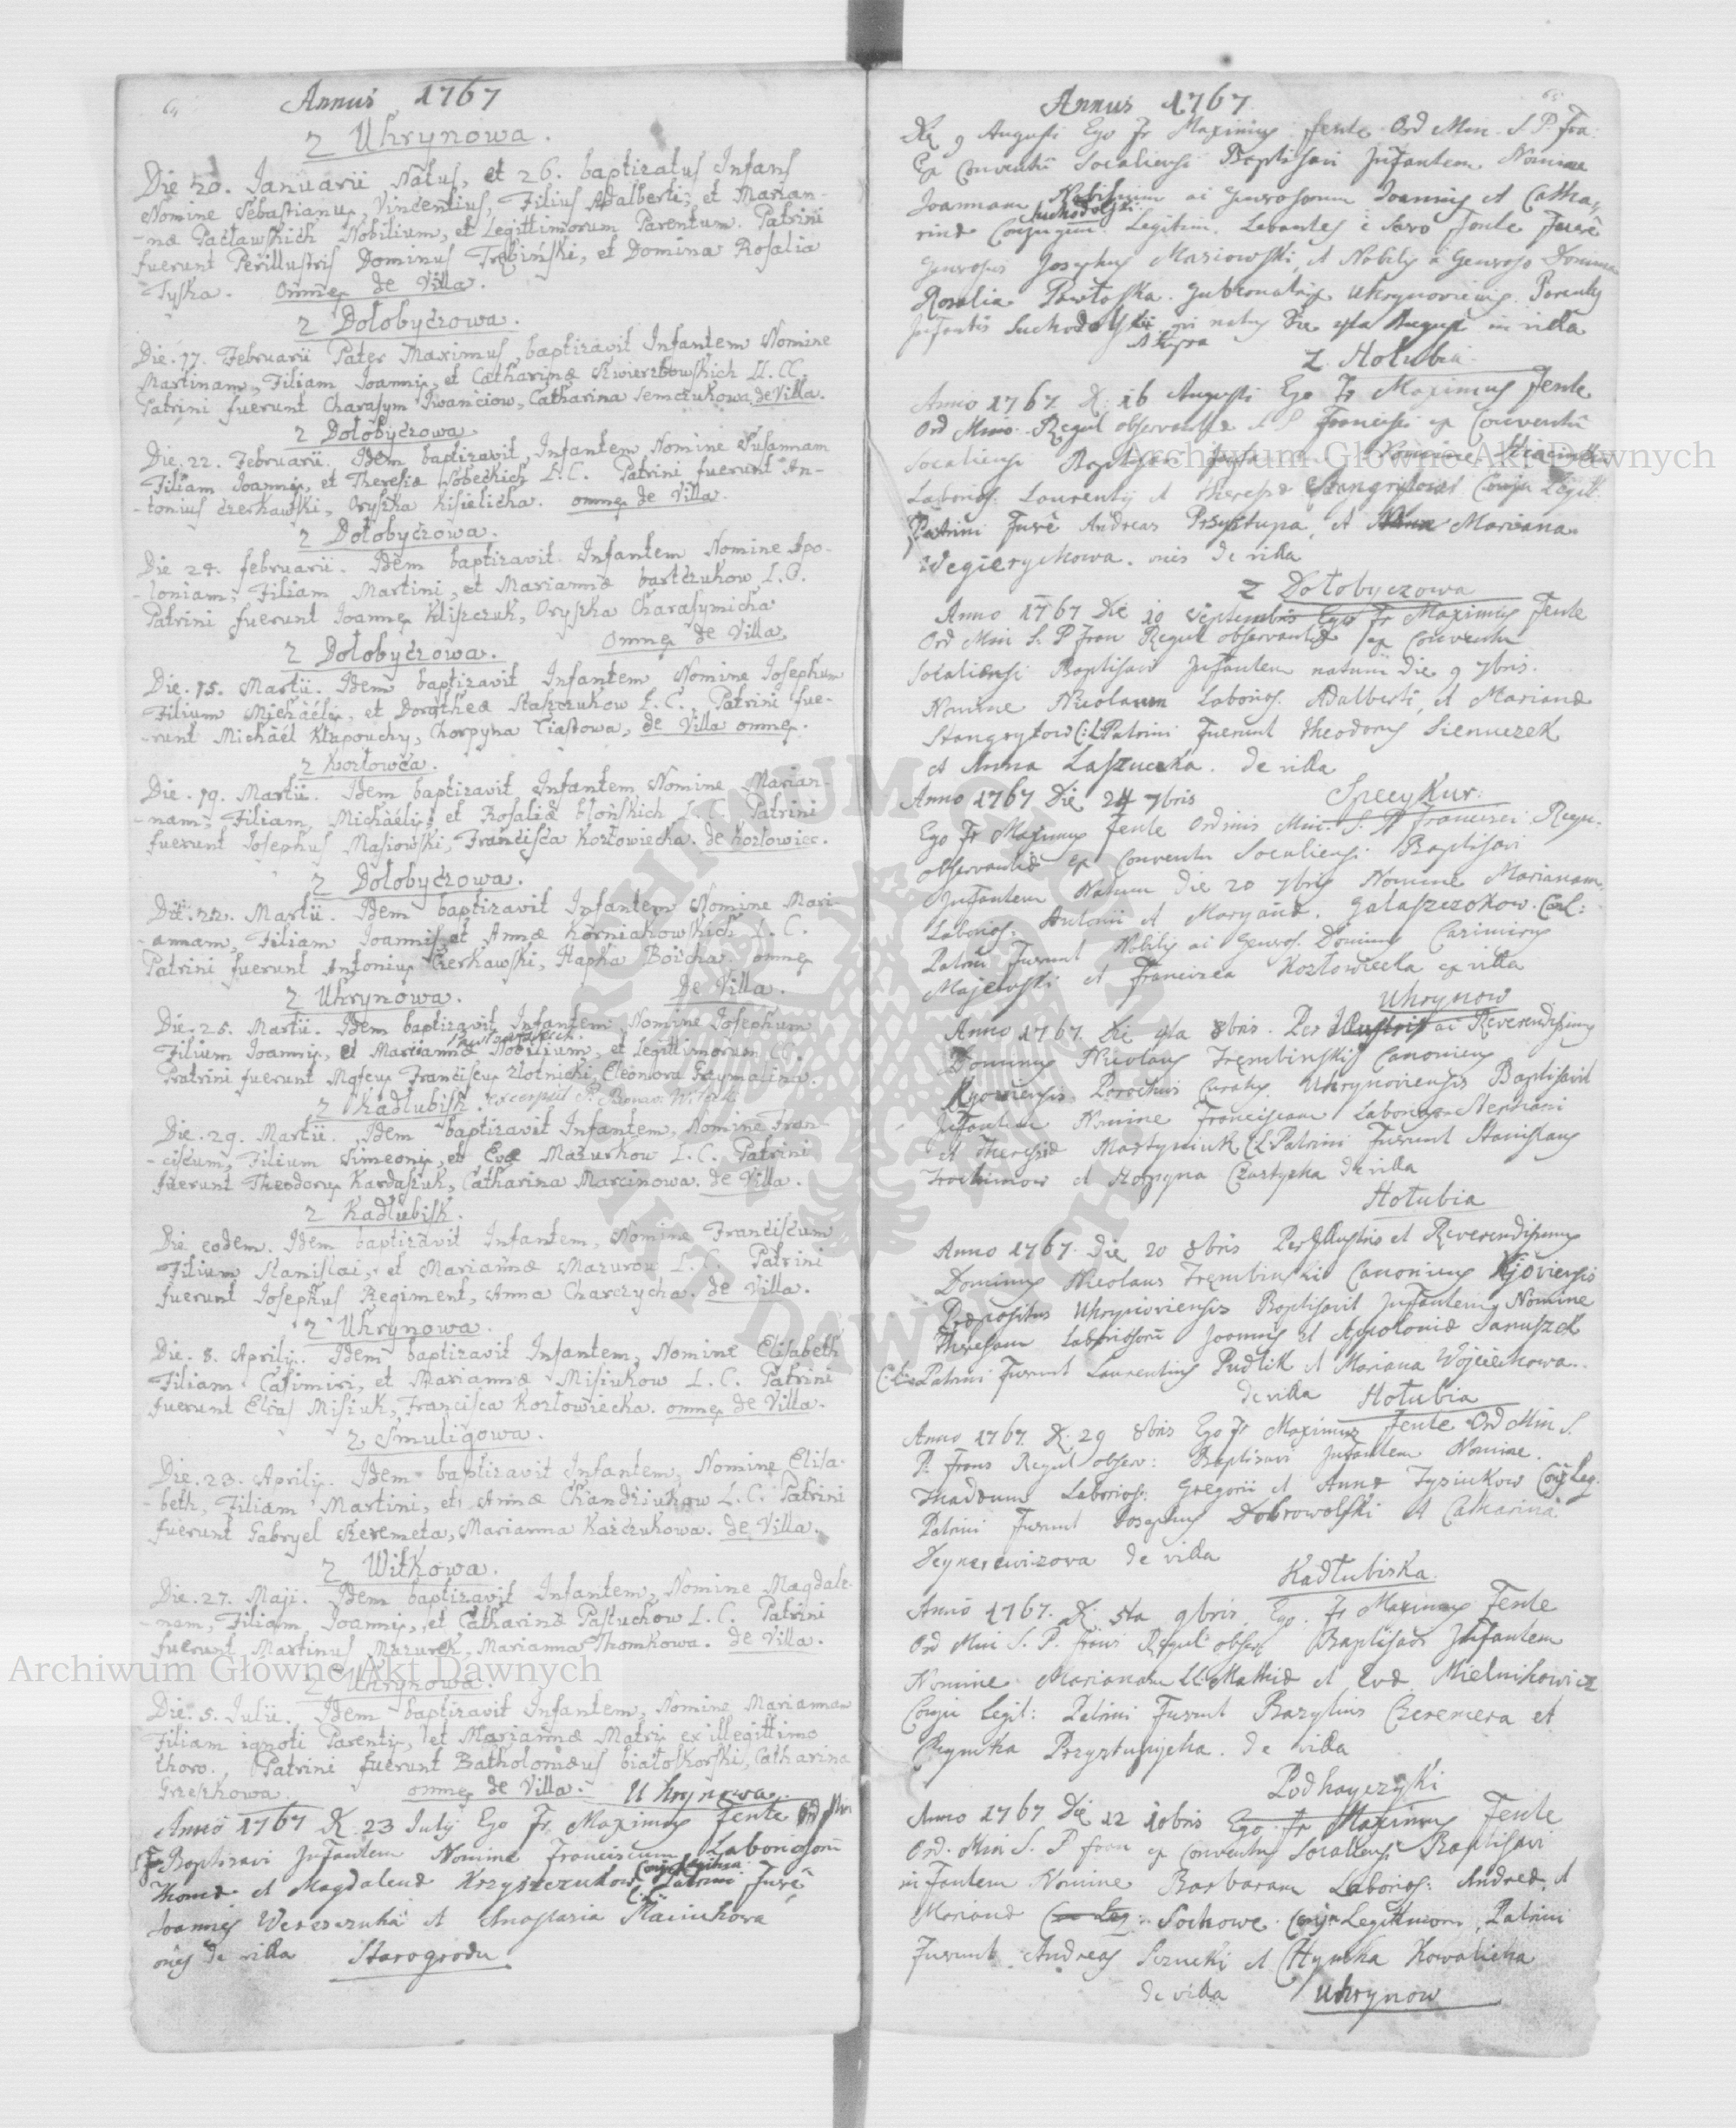 Annus 1767
z Uhrynowa.
Die 20. Januarii Natus, et 26. baptizatus Infans
Nomine Sebastianus, Vincentius, Filius Adalberti, et Marian-
-næ Pacławskich Nobilium, et Legittimorum Parentum. Patrini
fuerunt Perillustris Dominus Trębiński, et Domina Rosalia
Tyska. Omnes de Villa.
z Dołobyczowa.
Die. 17. Februarii Pater Maximus, baptizavit Infantem Nomine
Martinam, Filiam Joannis, et Catharinæ Kwierzbowskich LL. CC.
Patrini fuerunt Charasym Iwanciow, Catharina Semczukowa. de Villa.
z Dołobyczowa.
Die. 22. Februarii. Idem baptizavit, Infantem Nomine Susannam
Filiam Joannis, et Theresiæ Sobeckich L. C. Patrini fuerunt An-
-tonius Czerkawski, Oryszka Kisielicha. omnes de Villa.
z Dołobyczowa.
Die 24. februarii. Idem baptizavit Infantem Nomine Apo-
-loniam, Filiam Martini, et Mariannæ bartczukow L. C.
Patrini fuerunt Joannes Kliszczuk, Oryszka Charasymicha
Omnes de Villa
z Dołobyczowa.
Die. 15. Martii. Idem baptizavit Infantem Nomine Josephum
Filium Michaëlis, et Dorotheæ Staszczukow L. C. Patrini fue-
-runt Michaël Kłapouchy, Chorpyna Ciastowa, de Villa omnes.
z Kozłowca.
Die. 19. Martii. Idem baptizavit Infantem Nomine Marian-
-nam, Filiam Michaëlis, et Rosaliæ Błońskich L. C. Patrini
fuerunt Josephus Masiowski, Francisca Kozłowiecka. de Kozłowiec.
z Dołobyczowa.
Die. 22. Martii. Idem baptizavit Infantem Nomine Mari-
-annam, Filiam Joannis, et Annæ Korniakowskich L. C.
Patrini fuerunt Antonius Czerkawski, Hapka Boicha. omnes
de Villa.
z Uhrynowa.
Die. 25. Martii. Idem baptizavit Infantem Nomine Josephum
Filium Joannis, et Mariannæ Nobilium, et Legittimorum CC.
Patrini fuerunt Franciscus Złotnicki, Eleonora Grzymalina.
z Kadłubisk.
Die. 29. Martii. Idem baptizavit Infantem, Nomine Fran-
-ciscum, Filium Simeonis, et Evæ Mazurkow L. C. Patrini
fuerunt Theodorus Kardaszuk, Catharina Marcinowa. de Villa.
z Kadłubisk.
Die eodem. Idem baptizavit Infantem, Nomine Franciscum
Filium Stanislai, et Mariannæ Mazurow L. C. Patrini
fuerunt Josephus Regiment, Anna Charczycha. de Villa.
z Uhrynowa.
Die. 8. Aprilis. Idem baptizavit Infantem, Nomine Elisabeth
Filiam Casimiri, et Mariannæ Misiukow L. C. Patrini
fuerunt Elias Misiuk, Francisca Kozłowiecka. omnes de Villa.
z Smuligowa.
Die. 23. Aprilis. Idem baptizavit Infantem, Nomine Elisa-
-beth, Filiam Martini, et Annæ Chandziukow L. C. Patrini
fuerunt Gabryel Szeremeta, Marianna Kaźczukowa. de Villa.
z Witkowa.
Die. 27. Maji. Idem baptizavit Infantem, Nomine Magdale-
-nam, Filiam Joannis, et Catharinæ Pastuchow L. C. Patrini
fuerunt Martinus Mazurek, Marianna Thomkowa. de Villa.
z Uhrynowa.
Die. 5. Julii. Idem baptizavit Infantem, Nomine Mariannam
Filiam ignoti Parentis, et Mariannæ Matris ex illegittimo
thoro. Patrini fuerunt Batholomæus białoskorski, Catharina
Grzeszkowa. omnes de Villa. Uhrynowa.
Anno 1767 D. 23 July Ego Fr. Maximus Fente Ord Min
Baptizavi Infantem Nomine Franciscum Laboriosorū
Thomæ et Magdalenæ Krzyszczukow Patrini Fuerē
Joannes Wereszczuka et Anastazia Maciukowa
oñes de villa Starogrodu
Annus 1767.
Die 9 Augusti Ego Fr Maximus fente Ord Min. S. P. Fra:
Ex Conventu Socaliensi Baptisavi Infantem Nomine
Joannam Nobilium ac Generosorum Joannis et Catha-
Suchodolski
rinæ Conjugum Legitim. Levantes è Sacro Fonte Fuerē
Generosus Josephus Masiowski, et Nobilis ac Generosa Domina
Rosalia Pawłoska. Gubernatrix Uhrynoviensis. Parentes
Infantis Suchodolskie qui natus Die 4ta August in villa
z. Hołubia
Anno 1767. D: 16 Augusti Ego Fr Maximus Fente
Ord Mino. Regul observantiæ S. P. Francisci ex Conventu
Socaliensi Nomine
Laborios: Laurenty et Theresæ Conju Legitt.
Patrini Fuerē Andreas Przystupa, et Mariana
Wegierychowa. ones de villa
z Dołobyczowa
Anno 1767 Die 10 Septembris Ego Fr Maximus Fente
Ord Min S. P Fran Regul observantiæ ex Conventu
Socaliensi Baptisavi Infantem natum Die 9 7bris.
Nomine Nicolaum Laborios. Adalberti, et Marianæ
Hangrytow C: L Patrini Fuerunt Theodorus Sienuczek
et Anna Laszuczka. de villa
Anno 1767 Die 24 7bris Specykur.
Ego Fr Maximus Fente Ordinis Min. S. P Francisci Regu.
observantiæ ex Conventu Socaliensi. Baptisavi
Infantem Natum Die 20 7bris Nomine Marianam
Laborios. Antonii et Maryānæ. Galaszczokow.
Patrini Fuerunt Nobilis ac Generos. Dominus Cazimirus
Majewski et Francisca Kozłowiecka ex villa
Uhrynow
Anno 1767. Die 4ta 8bris. Per Illustris ac Reverendissimus
Dominus Nicolaus Trembinskij Canonicus
Kyoviensis. Parochus Curatus Uhrynoviensis Baptisavit
Infantem Nomine Franciscam Laborios.
et Theresiæ Martyniuk C.L Patrini Fuerunt Stanislaus
Trochimow et Horpyna Czastycka de villa
Hołubia
Anno 1767. Die 20 8bris Per Illustris et Reverendissimus
Dominus Nicolaus Trembinski Canonicus Kijoviensis
Præpositus Uhrynoviensis Baptisavit Infantem Nomine
Theresam Laboriosorū Joannis et Appoloniæ Januszek
Patrini Fuerunt Laurentius Pudlik et Mariana Wojciechowa.
de villa Hołubia
Anno 1767. D: 29 8bris Ego Fr Maximus Fente Ord Min S.
P. Frans Regul observ: Baptisavi Infantem Nomine
Thadeum Laborios: Gregorii et Annæ Tysiukow Conj Leg.
Patrini Fuerunt Josephus Dobrowolski et Catharina
de villa
Kadłubiska.
Anno 1767. D. 5ta 9bris. Ego. Fr Maximus Fente
Ord Min S. P. Frans Regul observ Baptisavi Infantem
Nomine Marianam LL: Mathiæ et Evæ Mielnikowicz
Conju Legit: Patrini Fuerunt Bazylius Czerencera et
Chymka Przystupicha. de villa
Podhayczyki
Anno 1767 Die 12 10bris Ego Fr Maximus Fente
Ord. Min S. P fran ex Conventu Socaliensi Baptisavi
inFantem Nomine Barbaram Laborios: Andreæ. et
Marianæ Sochowe. Conju Legittimorū, Patrini
Fuerunt Andreas Szucki et Chymka Kowalicha
de villa Uhrynow
Archiwum Główne Akt Dawnych
Archiwum Główne Akt Dawnych
ARCHIWUM GŁÓWNE AKT DAWNYCH